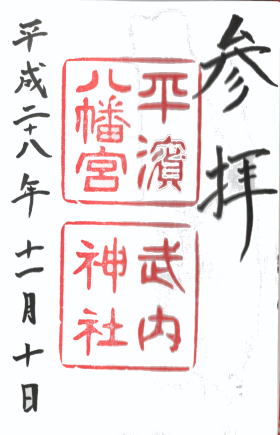 参拝
平濱
八幡宮
武内
神社
平成二十八年十一月十日